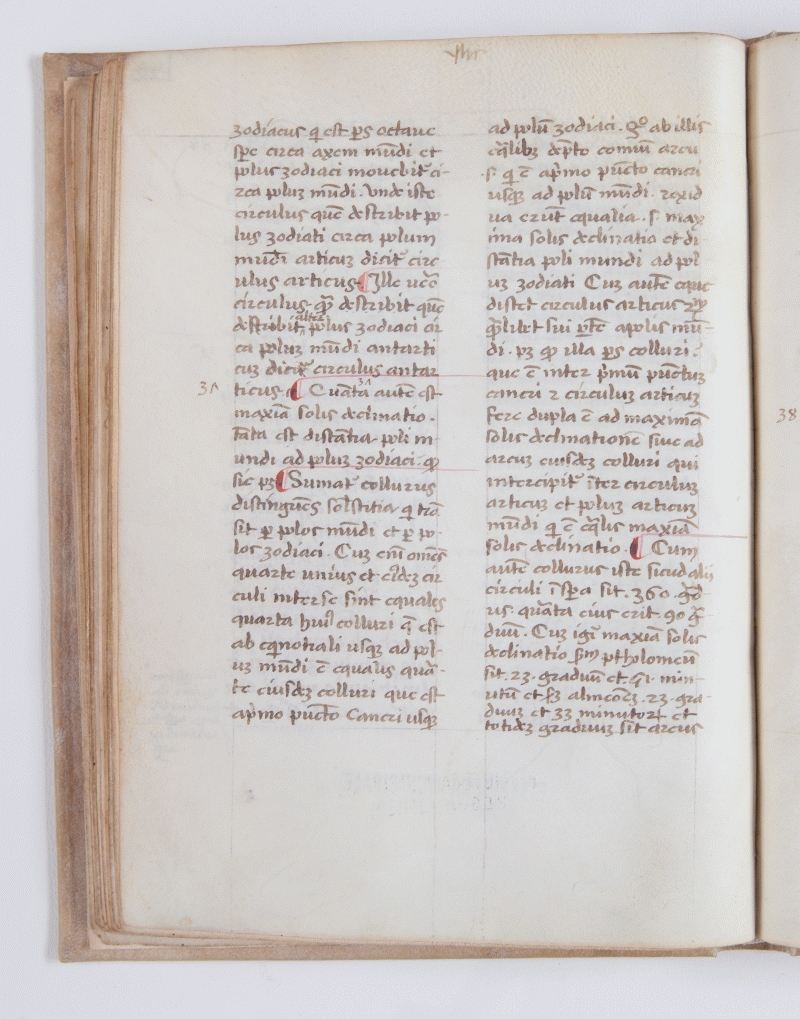 zodiacus q̄ est ꝑs octaue
sꝑe circa axem mūdi et
polus zodiaci mouebit᷑ ci-
rca poluꝫ mūdi. Vnde iste
circulus quē describit po-
lus zodiati circa polum
mūdi articuꝫ dicit᷑ circ
ulus articus. ¶ Ille uēo
circulus qꝫ describit quē
describit alter polus zodiaci cir
ca poluꝫ mūdi antarti
cuꝫ dicit᷑ circulus antar
ticus. ¶ Cuāta autē est
31
maxiā solis declinatio.
Tāta est distātia poli m-
undi ad poluꝫ zodiaci. qꝫ
sic pꝫ ¶ Sumat᷑ collurus
distinguēs solstitia q̄ trā
sit ꝑ polos mūdi et ꝑ po-
los zodiaci. Cuꝫ em̄ omēs
quarte unius et eīdeꝫ cir
culi inter se sint equales
quarta huiꝰ colluri q̄ est
ab eq̄notiali usqꝫ ad pol-
uꝫ mūdi ē equalis quar-
te eiusdeꝫ colluri que est
ap̄mo pūcto Cancri usqꝫ
ad polū zodiaci. gͦ ab illis
eq̄libꝫ dēpto comūi arcu
.s. q̄ ē ap̄mo pūcto cancri
usqꝫ ad polū mūdi. resid
ua erūt equalia. s. max
ima solis declinatio et di-
stātia poli mundi ad pol
uꝫ zodiati Cuꝫ autē
distet circulus articus
sui ꝑte apolis mū-
di. pꝫ qꝫ illa ꝑs colluri
que ē inter p̄mū pūctuꝫ
cancri ⁊ circuluꝫ articuꝫ
fere dupla ē ad maximā
solis declinationē siue ad
arcuꝫ eiusdeꝫ colluri qui
intercipit᷑ īter circuluꝫ
articuꝫ et poluꝫ articuꝫ
mūdi q̄ ē eq̄lis maxiā
solis declinatio. ¶ Cum
autē collurus iste sicud alii
circuli ī sꝑa sit. 360. gͣd
us. quāta eius erit. 90 gͣ-
duū. Cuꝫ igiꞇ᷑ maxiā solis
declinatio scd̄m ptholomeū
sit. 23. graduū et. 51. min-
utū et scꝫ almeōeꝫ. 23. gra-
duuꝫ et 33 minutoꝝ et
totideꝫ graduuꝫ sit arcus
38